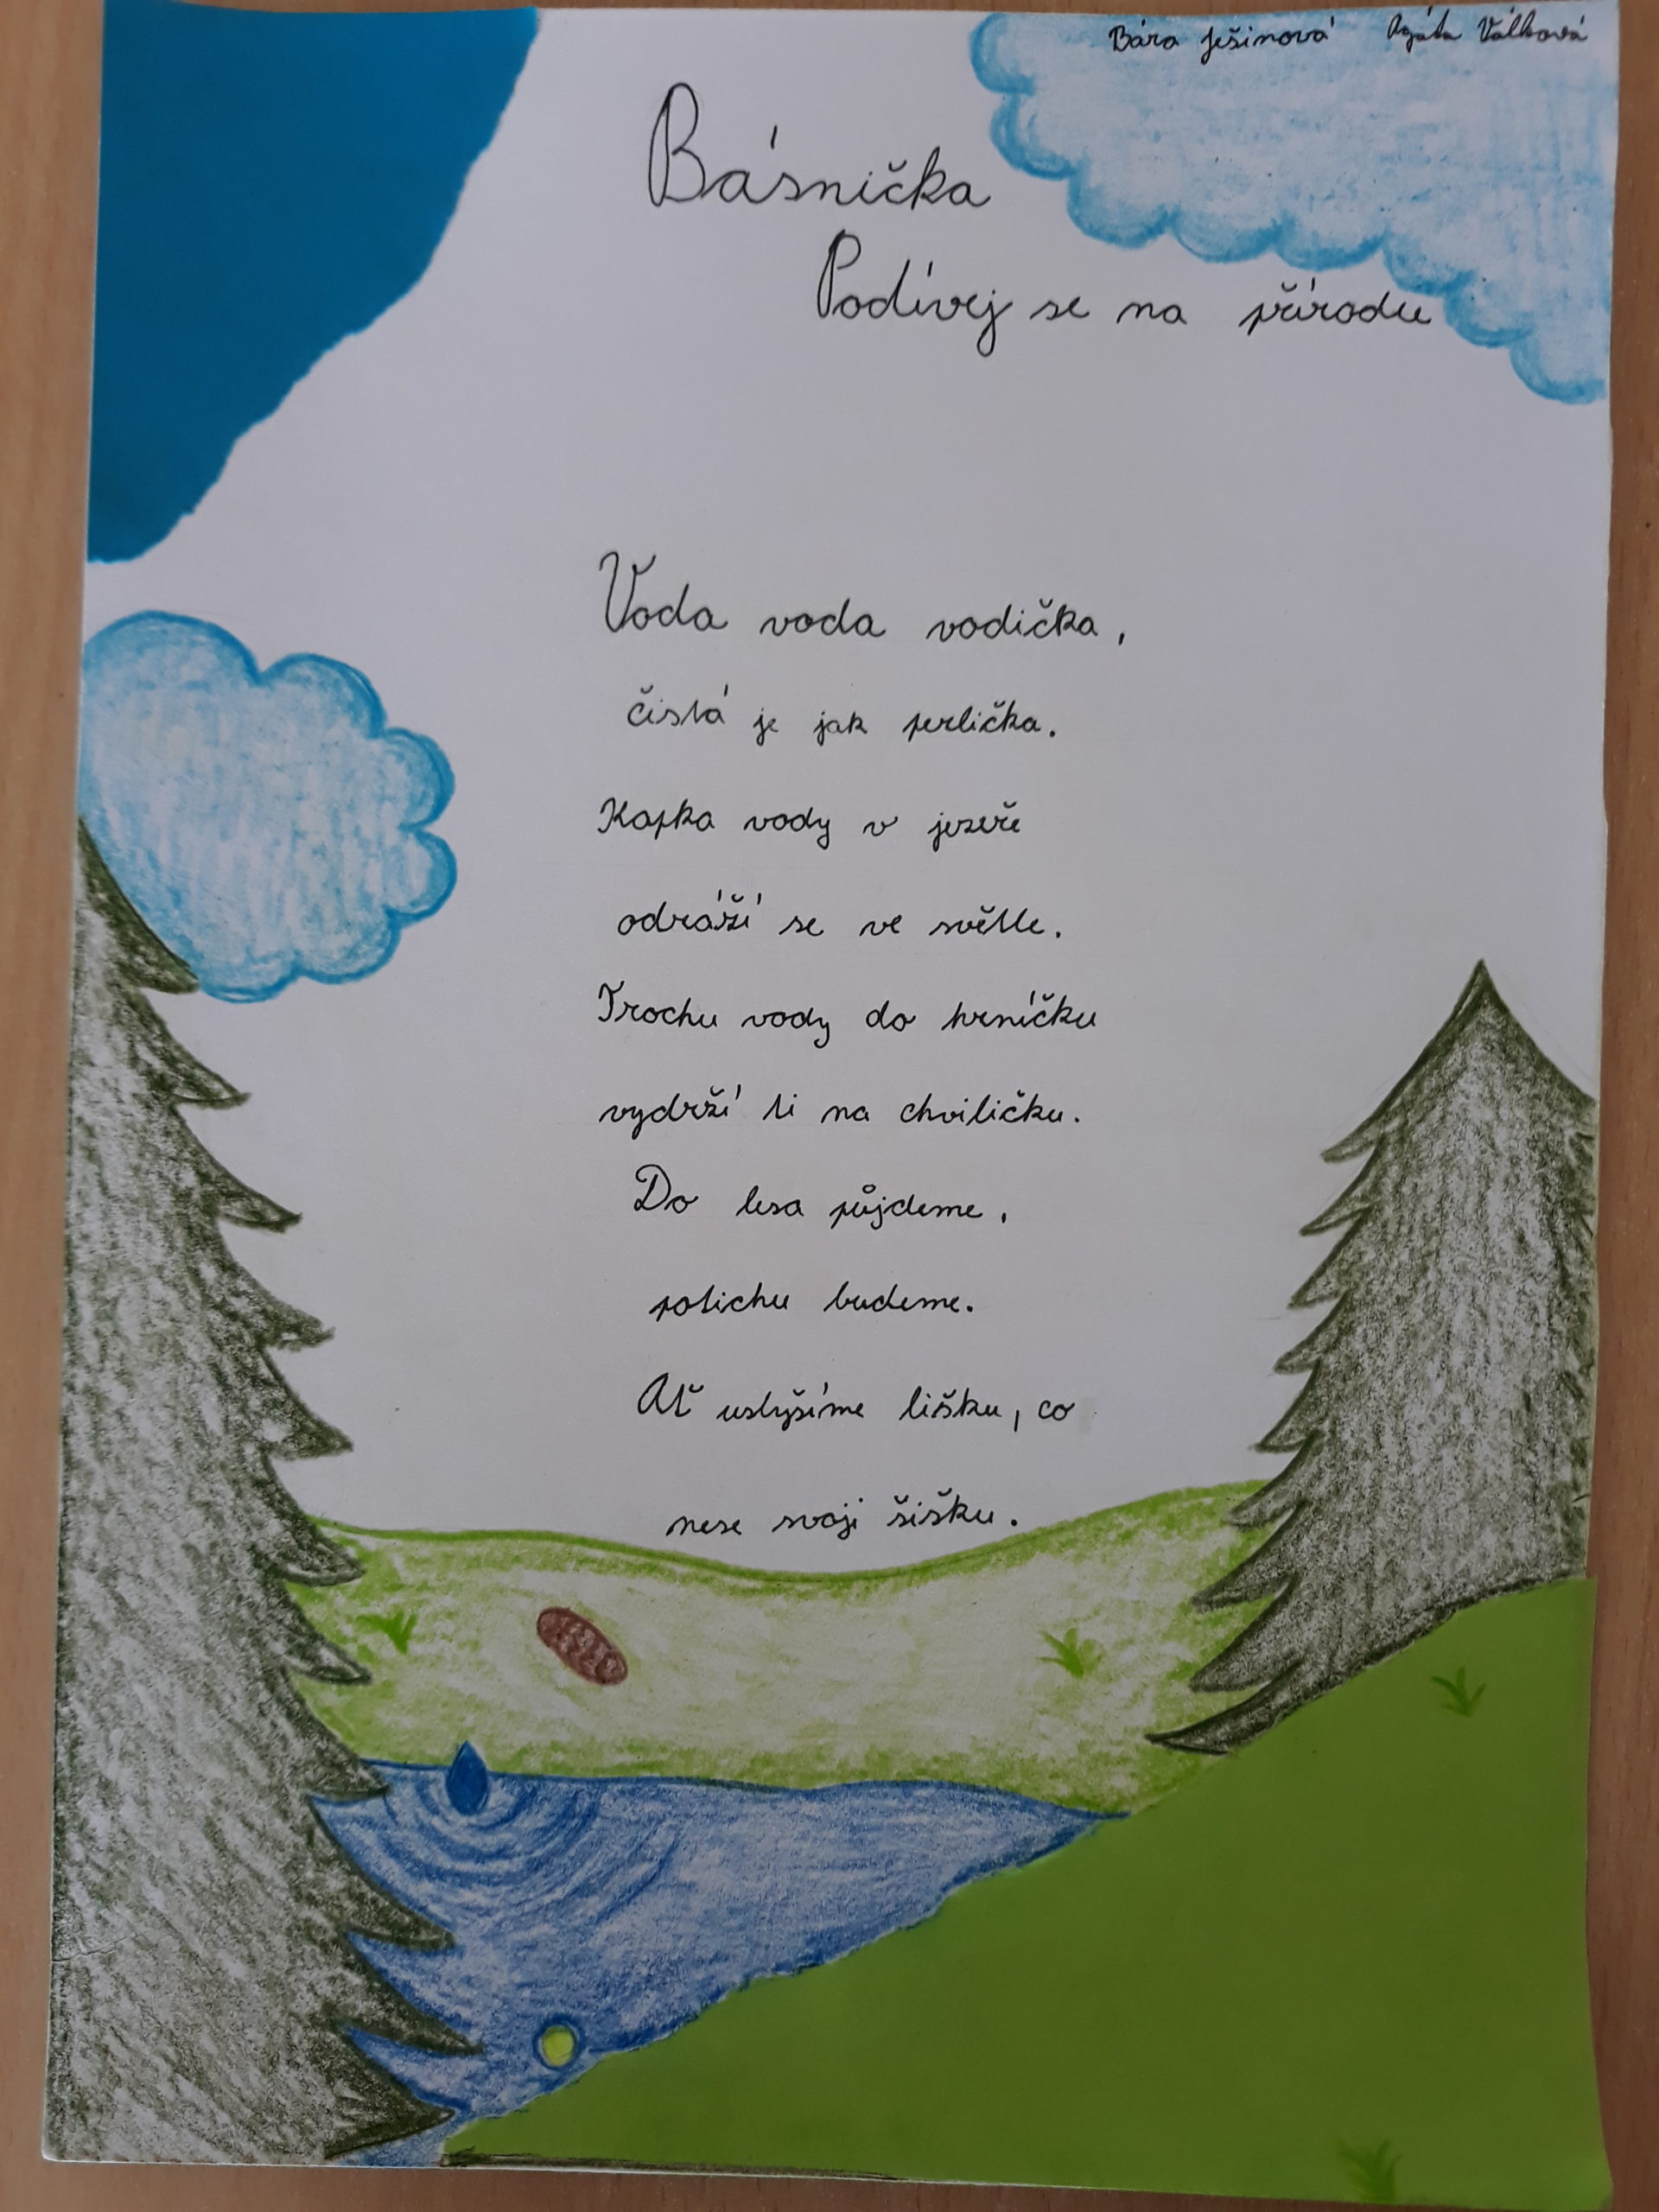 Bára Ješinová Agáta Válková
Básnička
Podívej se na přírodu
Voda voda vodička,
čistá je jak perlička.
Kapka vody v jezeře
odráží se ve světle.
Trochu vody do hrníčku
vydrží ti na chviličku.
Do lesa půjdeme,
potichu budeme.
Ať uslyšíme lišku, co
nese svoji šišku.